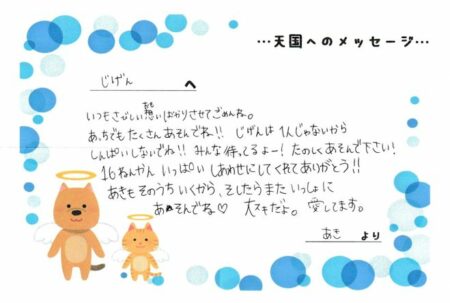 …天国へのメッセージ…
じげん へ
いつもさみしい思いばかりさせてごめんね。
あっちでもたくさんあそんでね!! じげんは1人じゃないから
しんぱいしないでね!! みんな待ってるよー! たのしくあそんで下さい!
16ねんかん いっぱい しあわせにしてくれてありがとう!!
あきもそのうちいくから、そしたらまた いっしょに
あそんでね♡ 大スキだよ。愛してます。
あき より